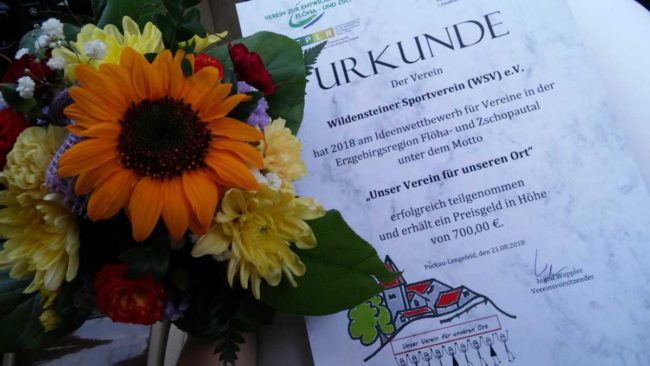 VEREIN ZUR ENTWICKLUNG
FLÖHA- UND ZSCHOPAUTAL
URKUNDE
Der Verein
Wildensteiner Sportverein (WSV) e.V.
hat 2018 am Ideenwettbewerb für Vereine in der
Erzgebirgsregion Flöha- und Zschopautal
unter dem Motto
„Unser Verein für unseren Ort"
erfolgreich teilgenommen
und erhält ein Preisgeld in Höhe
von 700,00 €.
Pockau-Lengefeld, den 21.08.2018
Wappler
Vereinsvorsitzender
Unser Verein für unseren Ort